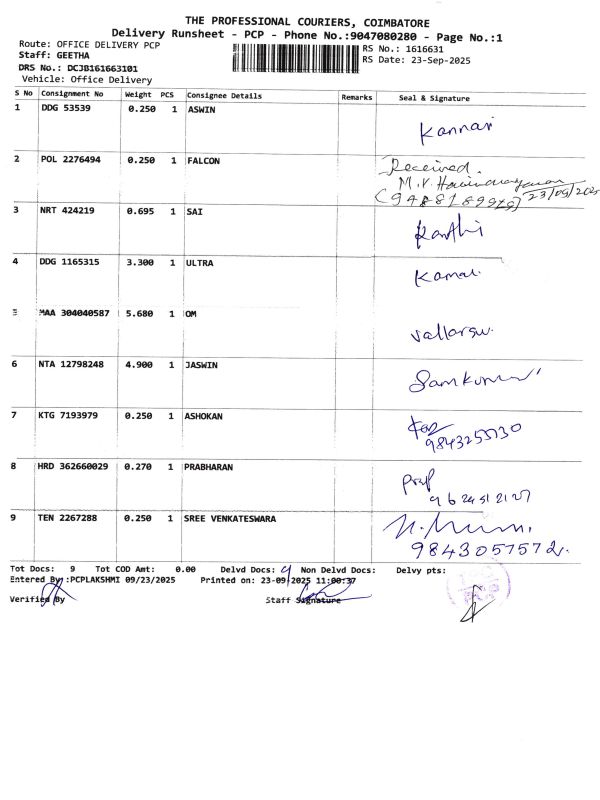 THE PROFESSIONAL COURIERS, COIMBATORE
Delivery Runsheet - PCP - Phone No.:9047080280 - Page No.:1
Route: OFFICE DELIVERY PCP
Staff: GEETHA
DRS No.: DCJB161663101
Vehicle: Office Delivery
RS No.: 1616631
RS Date: 23-Sep-2025
S No Consignment No Weight PCS Consignee Details Remarks Seal & Signature
1 DDG 53539 0.250 1 ASWIN Kannan
2 POL 2276494 0.250 1 FALCON Received.
M.V.
23/09/2025
3 NRT 424219 0.695 1 SAI Karthi
4 DDG 1165315 3.300 1 ULTRA Kamal
5 MAA 304040587 5.680 1 OM
6 NTA 12798248 4.900 1 JASWIN
7 KTG 7193979 0.250 1 ASHOKAN
8 HRD 362660029 0.270 1 PRABHARAN
9 TEN 2267288 0.250 1 SREE VENKATESWARA
9843057572.
Tot Docs: 9 Tot COD Amt: 0.00 Delvd Docs: 9 Non Delvd Docs: Delvy pts:
Entered By:PCPLAKSHMI 09/23/2025 Printed on: 23-09-2025 11:00:37
Verified By Staff Signature